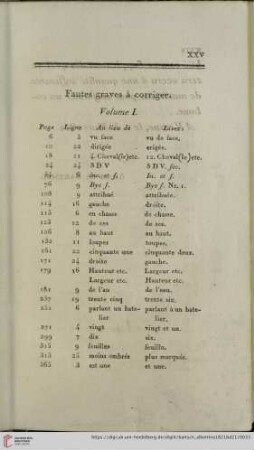 XXV
Fautes graves à corriger.
Volume I.
Page Ligne Au lieu de Lisez:
6 3 vu face vu de face.
10 22 dirigés érigés.
18 11 4. Cheval(le)etc. 12. Cheval(le)etc.
24 24 S D V S D V. fec.
64 8 In. f. In. et f.
76 9 Bye f. Bye f. Nr. 1.
108 9 attribué attribuée.
114 16 gauche droite.
115 6 en chasse de chasse.
123 12 de ces de ses.
126 8 au haut au haut.
132 11 loupes toupes.
161 22 cinquante une cinquante deux.
171 24 droite gauche.
179 16 Hauteur etc. Largeur etc.
Largeur etc. Hauteur etc.
181 9 de l'au de l'eau.
237 19 trente cinq trente six.
251 6 parlant un bate- parlant à un bate-
lier lier.
271 4 vingt vingt et un.
299 7 dix six.
313 9 feuilles feuillu.
313 25 moins ombrés plus marqués.
363 2 est une et une.